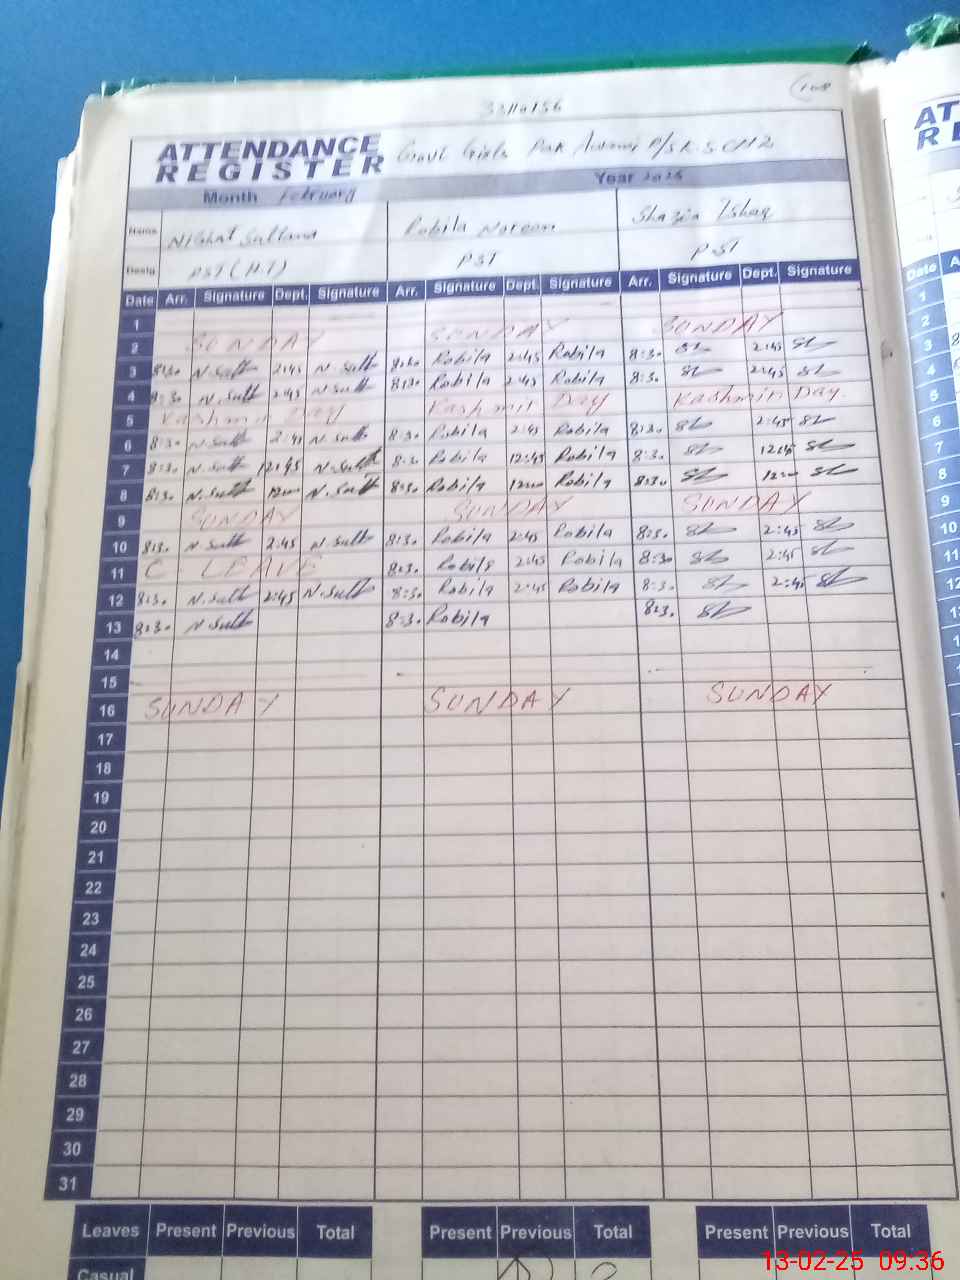 ATTENDANCE REGISTER Govt Girls Pak
Month February Year 2025
Name Nighat Sultana Robila Noreen Shazia Ishaq
Desig PST (H.T) PST PST
Date Arr. Signature Dept. Signature Arr. Signature Dept. Signature Arr. Signature Dept. Signature
1
2 SUNDAY SUNDAY SUNDAY
3 8:30 N.Sult 2:45 N.Sult 8:30 Robila 2:45 Robila 8:30 2:45
4 8:30 N.Sult 2:45 N.Sult 8:30 Robila 2:45 Robila 8:30 2:45
5 Kashmir Day Kashmir Day Kashmir Day
6 8:30 N.Sult 2:45 N.Sult 8:30 Robila 2:45 Robila 8:30 2:45
7 8:30 N.Sult 12:45 N.Sult 8:30 Robila 12:45 Robila 8:30 12:45
8 8:30 N.Sult N.Sult 8:30 Robila Robila 8:30
9 SUNDAY SUNDAY SUNDAY
10 8:30 N.Sult 2:45 N.Sult 8:30 Robila 2:45 Robila 8:30 2:45
11 C LEAVE 8:30 Robila 2:45 Robila 8:30 2:45
12 8:30 N.Sult 2:45 N.Sult 8:30 Robila 2:45 Robila 8:30 2:45
13 8:30 N.Sult 8:30 Robila 8:30
14
15
16 SUNDAY SUNDAY SUNDAY
17
18
19
20
21
22
23
24
25
26
27
28
29
30
31
Leaves Present Previous Total Present Previous Total Present Previous Total
Casual
13-02-25 09:36